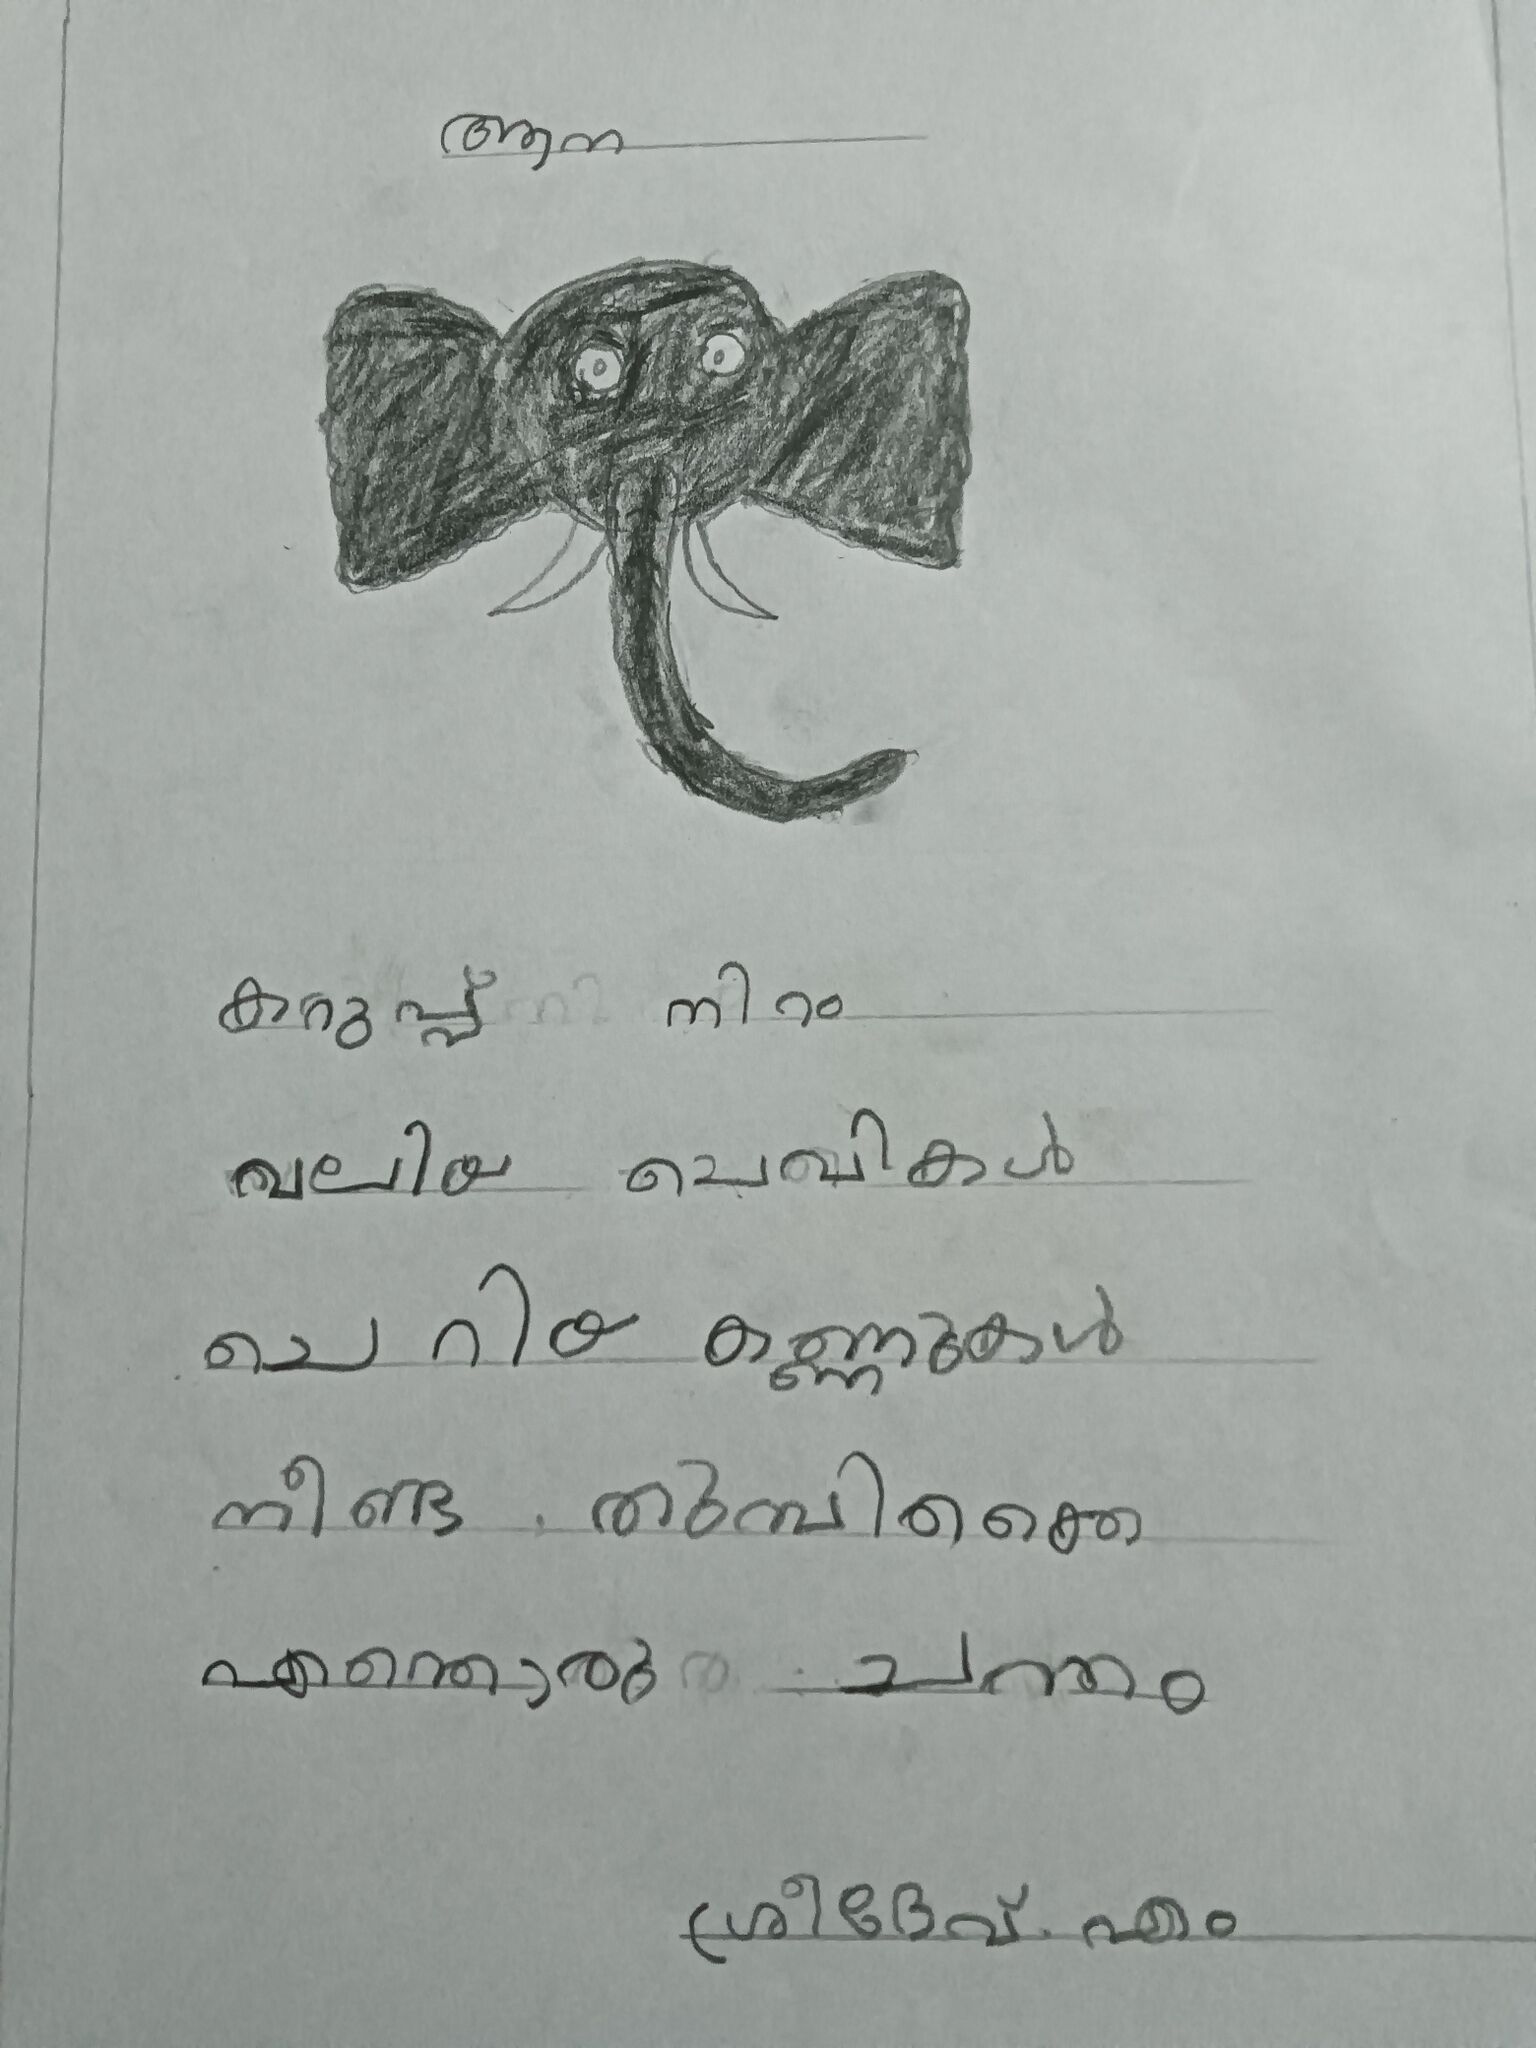 ആന
കറുപ്പ് നിറം
വലിയ ചെവികൾ
ചെറിയ കണ്ണുകൾ
നീണ്ട തുമ്പിക്കൈ
എന്തൊരു ചന്തം
ശ്രീദേവ്. എം